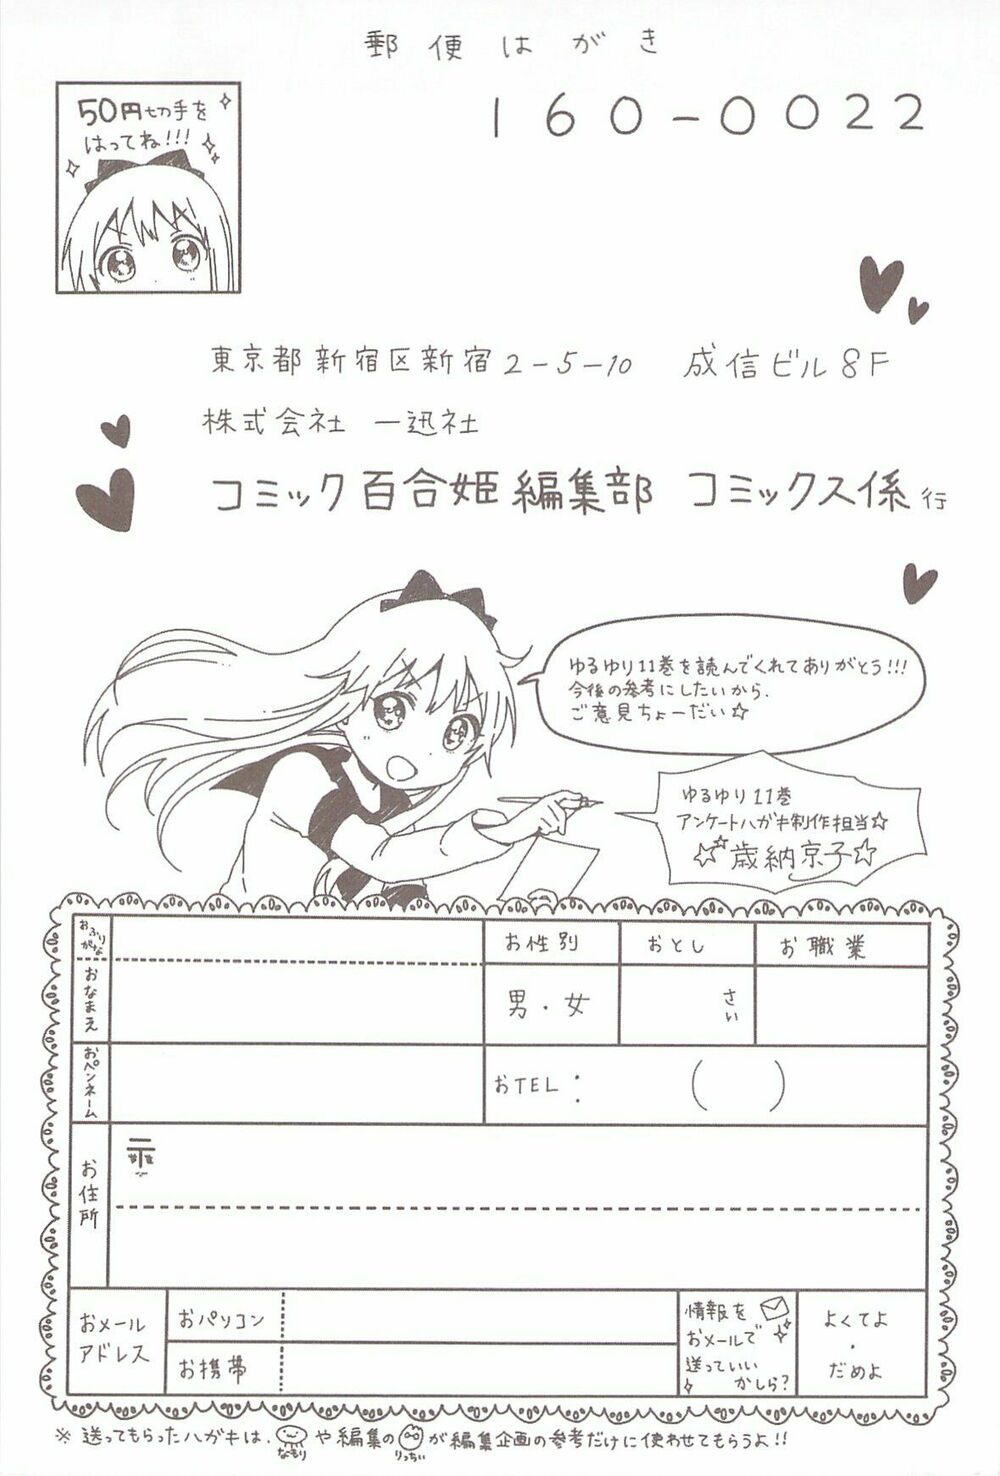 郵便はがき
50円切手を
はってね!!!
160-0022
東京都新宿区新宿2-5-10 成信ビル8F
株式会社 一迅社
コミック百合姫編集部 コミックス係行
ゆるゆり11巻を読んでくれてありがとう!!!
今後の参考にしたいから、
ご意見ちょーだい☆
ゆるゆり11巻
アンケートハガキ制作担当☆
☆☆歳納京子☆
おふりがな
おなまえ
お性別
おとし
お職業
男・女
さい
おペンネーム
おTEL: ( )
お住所
〒
おメール
アドレス
おパソコン
お携帯
情報を
おメールで
送っていい
かしら?
よくてよ
・
だめよ
※送ってもらったハガキは、なもりや編集のりっちぃが編集企画の参考だけに使わせてもらうよ!!